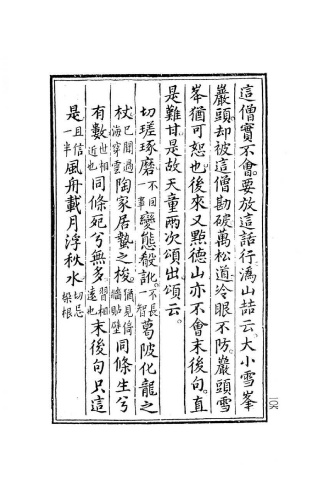 這僧實不會。要放這話行。溈山喆云。大小雪峯
巖頭。却被這僧勘破。萬松道。冷眼不防。巖頭雪
峯猶可恕也。後來又點德山亦不會末後句。直
是難甘。是故天童兩次頌出。頌云。
切瑳琢磨。不因一事變態殽訛。不長一智葛陂化龍之
杖已聞過海穿雲陶家居蟄之梭。猶見倚墻貼壁同條生兮
有數世相近也同條死兮無多。習相遠也末後句只這
是且信一半風舟載月浮秋水切忌根